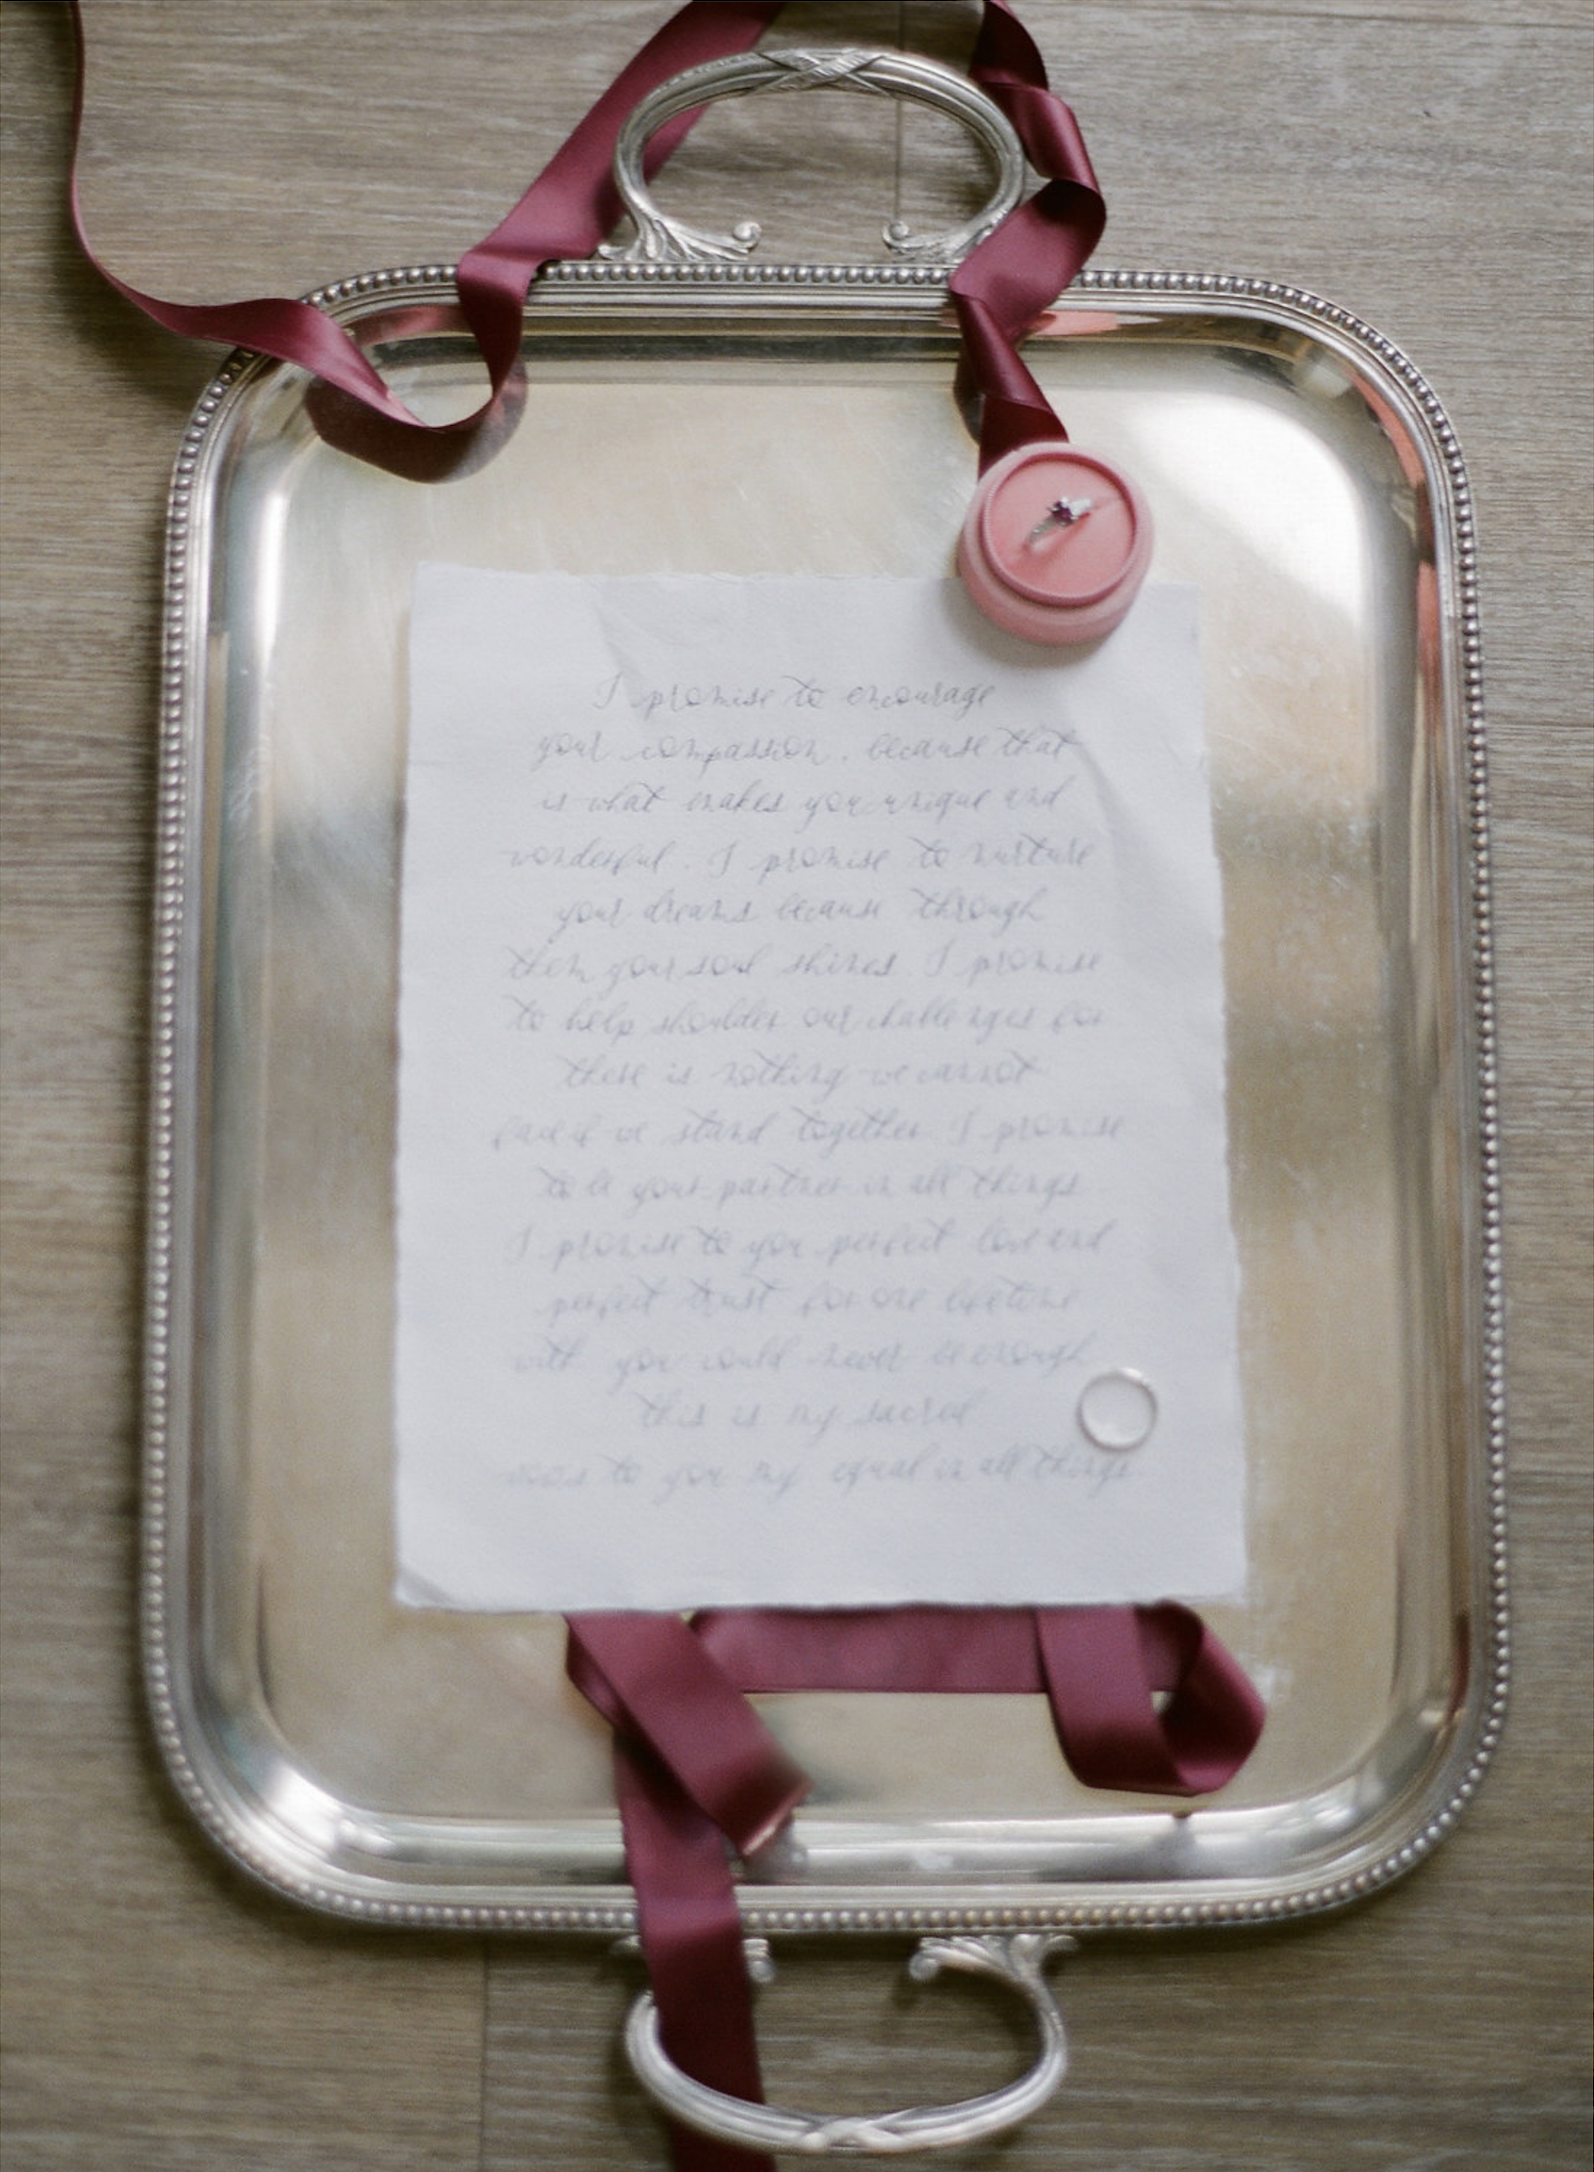 I promise to encourage
your compassion, because that
is what makes you unique and
wonderful. I promise to nurture
your dreams because through
them your soul shines. I promise
to help shoulder our challenges for
there is nothing we cannot
face if we stand together. I promise
to be your partner in all things
I promise to you perfect love and
perfect trust for one lifetime
with you could never be enough
this is my sacred
vows to you my equal in all things